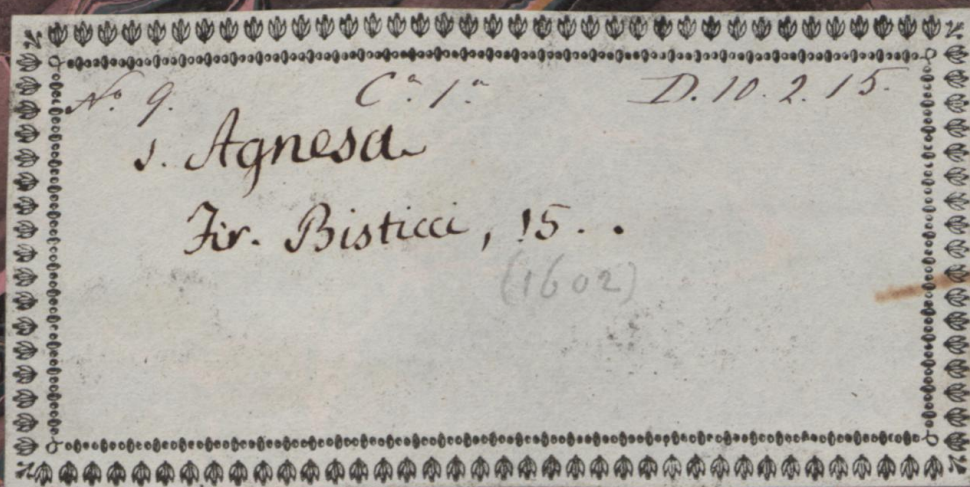 No. 9. Ca. 1a D. 10. 2. 15.
s. Agnesa
Fir. Bisticci, 15. .
(1602)